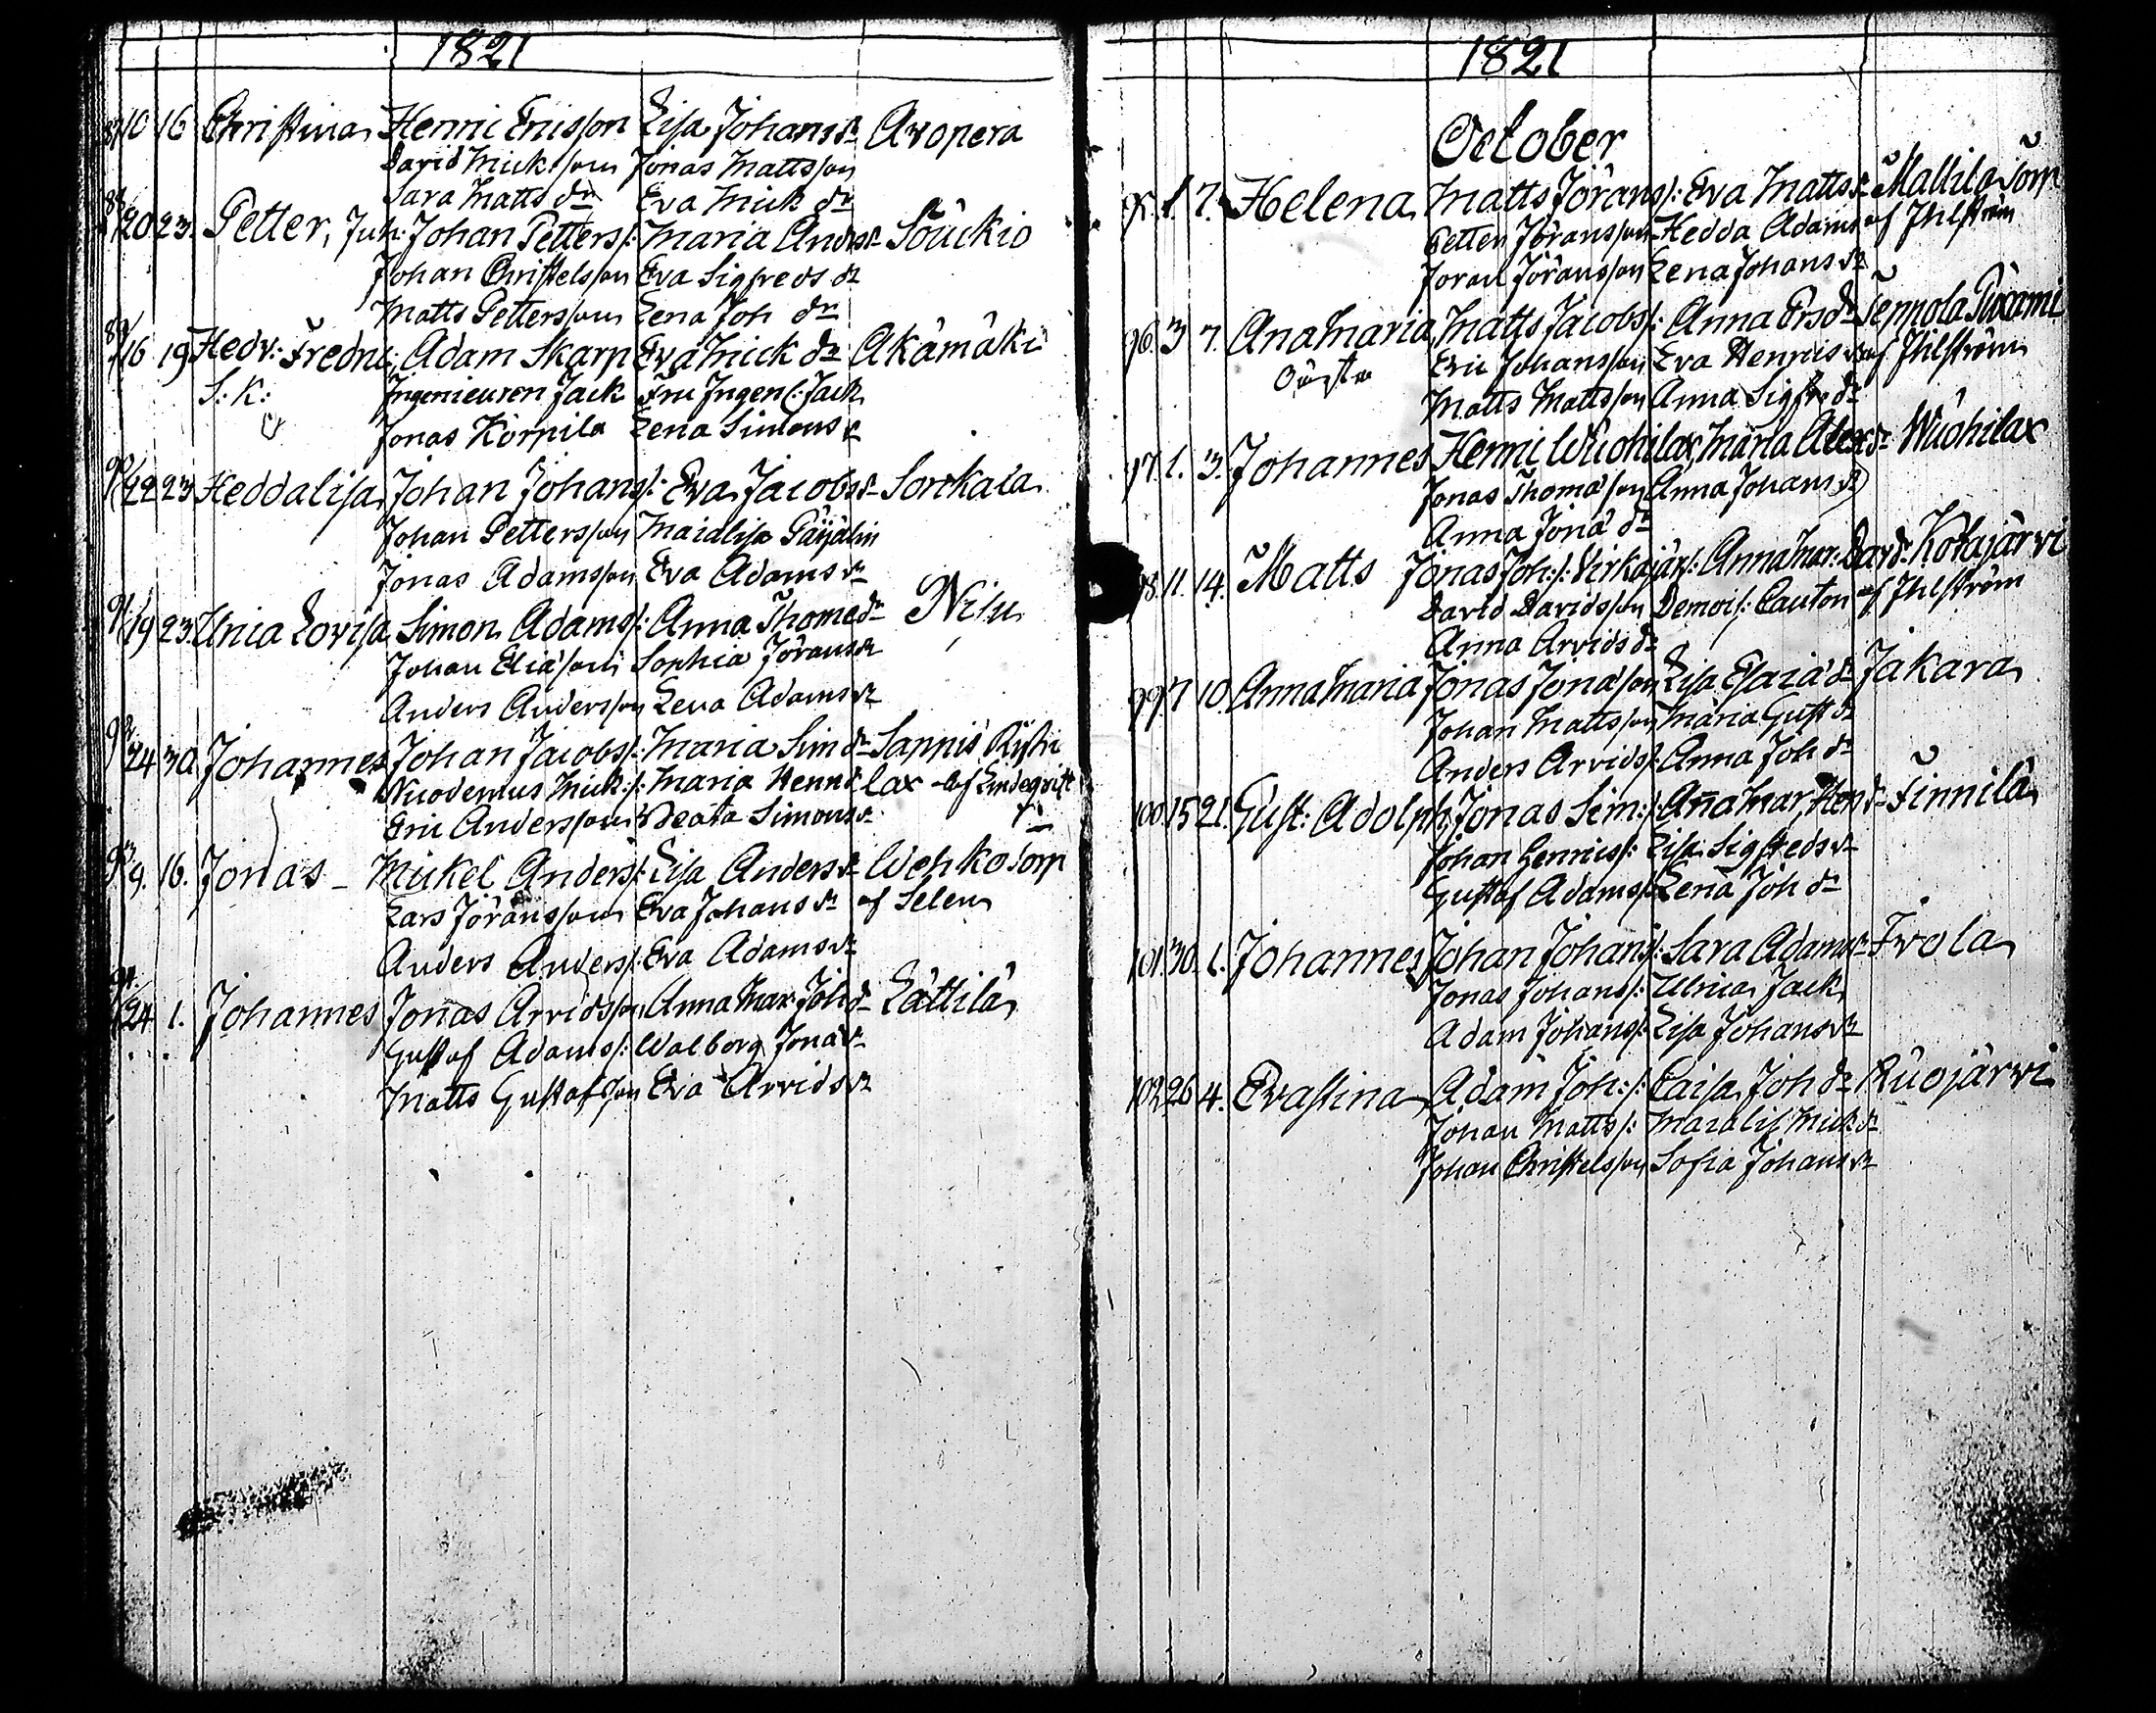 1821
87 10 16 Christina Henric Ericsson Lisa Johansdr Avopera
David Mickelsson Jonas Mattsson
Sara Matts dr Eva Mick dr
88 20 23 Petter, Joh: Johan Petters/: Maria Andersdr Souckio
Johan Christelsson Eva Sigfreds dr
Matts Pettersson Lena Joh dr
89 16 19 Hedv: Fredric: Adam Skarp Eva Mick dr Akämäki
S: K: Ingenieuren Jack Fru Ingen/: Jack
Jonas Korpila Lena Simonsdr
90 22 23 Heddalisa Johan Johans/: Eva Jacobsdr Sorkala
Johan Pettersson Maialisa
Jonas Adamsson Eva Adamsdr
91 19 23 Ulrica Lovisa Simon Adams/: Anna Thomedr Nisu
Johan Eliasson Sophia Jöransdr
Anders Andersson Lena Adamsdr
92 24 30 Johannes Johan Jacobs/: Maria Sim dr
Nicodemus Mick:/: Maria Henrdr lax af Lindeqvist
Eric Andersson Beata Simonsdr
93 9. 16. Jonas Mickel Anders/: Lisa Andersdr Wehkotorp
Lars Jöransson Eva Johansdr af Selen
Anders Anders/: Eva Adamsdr
94. 24 1. Johannes Jonas Arvidsson Anna Mar: Joh dr Lättilä
Gustaf Adams/: Walborg Jonädr
Matts Gustafsson Eva Arvidsdr
1821
October
95. 1. 7. Helena Matts Jörans/: Eva Mattsdr Mallila torp
Petter Jöransson Hedda Adams af Ihlström
Joran Jöransson Lena Johans dr
96. 3 7. Anamaria Matts Jacobs/: Anna Ersdr Seppola
Eric Johansson Eva Henricsdr af Ihlström
Matts Mattsson Anna Sigfredr
97. 1. 3. Johannes Henric Wuohilax Maria Alexdr Wuohilax
Jonas Thomasson Anna Johansdr
Anna Jona dr
98. 11. 14. Matts Jonas Joh:/: Virkajär/: Anna Mar: Davdr Kotajärvi
David Davidsson Demois/: Cauton af Ihlström
Anna Arvidsdr
99. 7 10. Annamaria Jonas Jonasson Lisa Esaiädr Jakara
Johan Mattsson Maria Gustdr
Anders Arvids/: Anna Joh dr
100. 15 21. Gust: Adolph Jonas Sim:/: Anamar. Hendr Finnilä
Johan Henrics/: Lisa Sigfredsdr
Gustaf Adams/: Lena Joh dr
101. 30. 1. Johannes Johan Johans/: Sara Adamsdr Frola
Jonas Johans/: Ulrica Jack
Adam Johans/: Lisa Johansdr
102 26 4. Evastina Adam Joh:/: Caisa Joh dr Ruojärvi
Johan Matts/: Maialis Mickdr
Johan Christelsson Sofia Johansdr